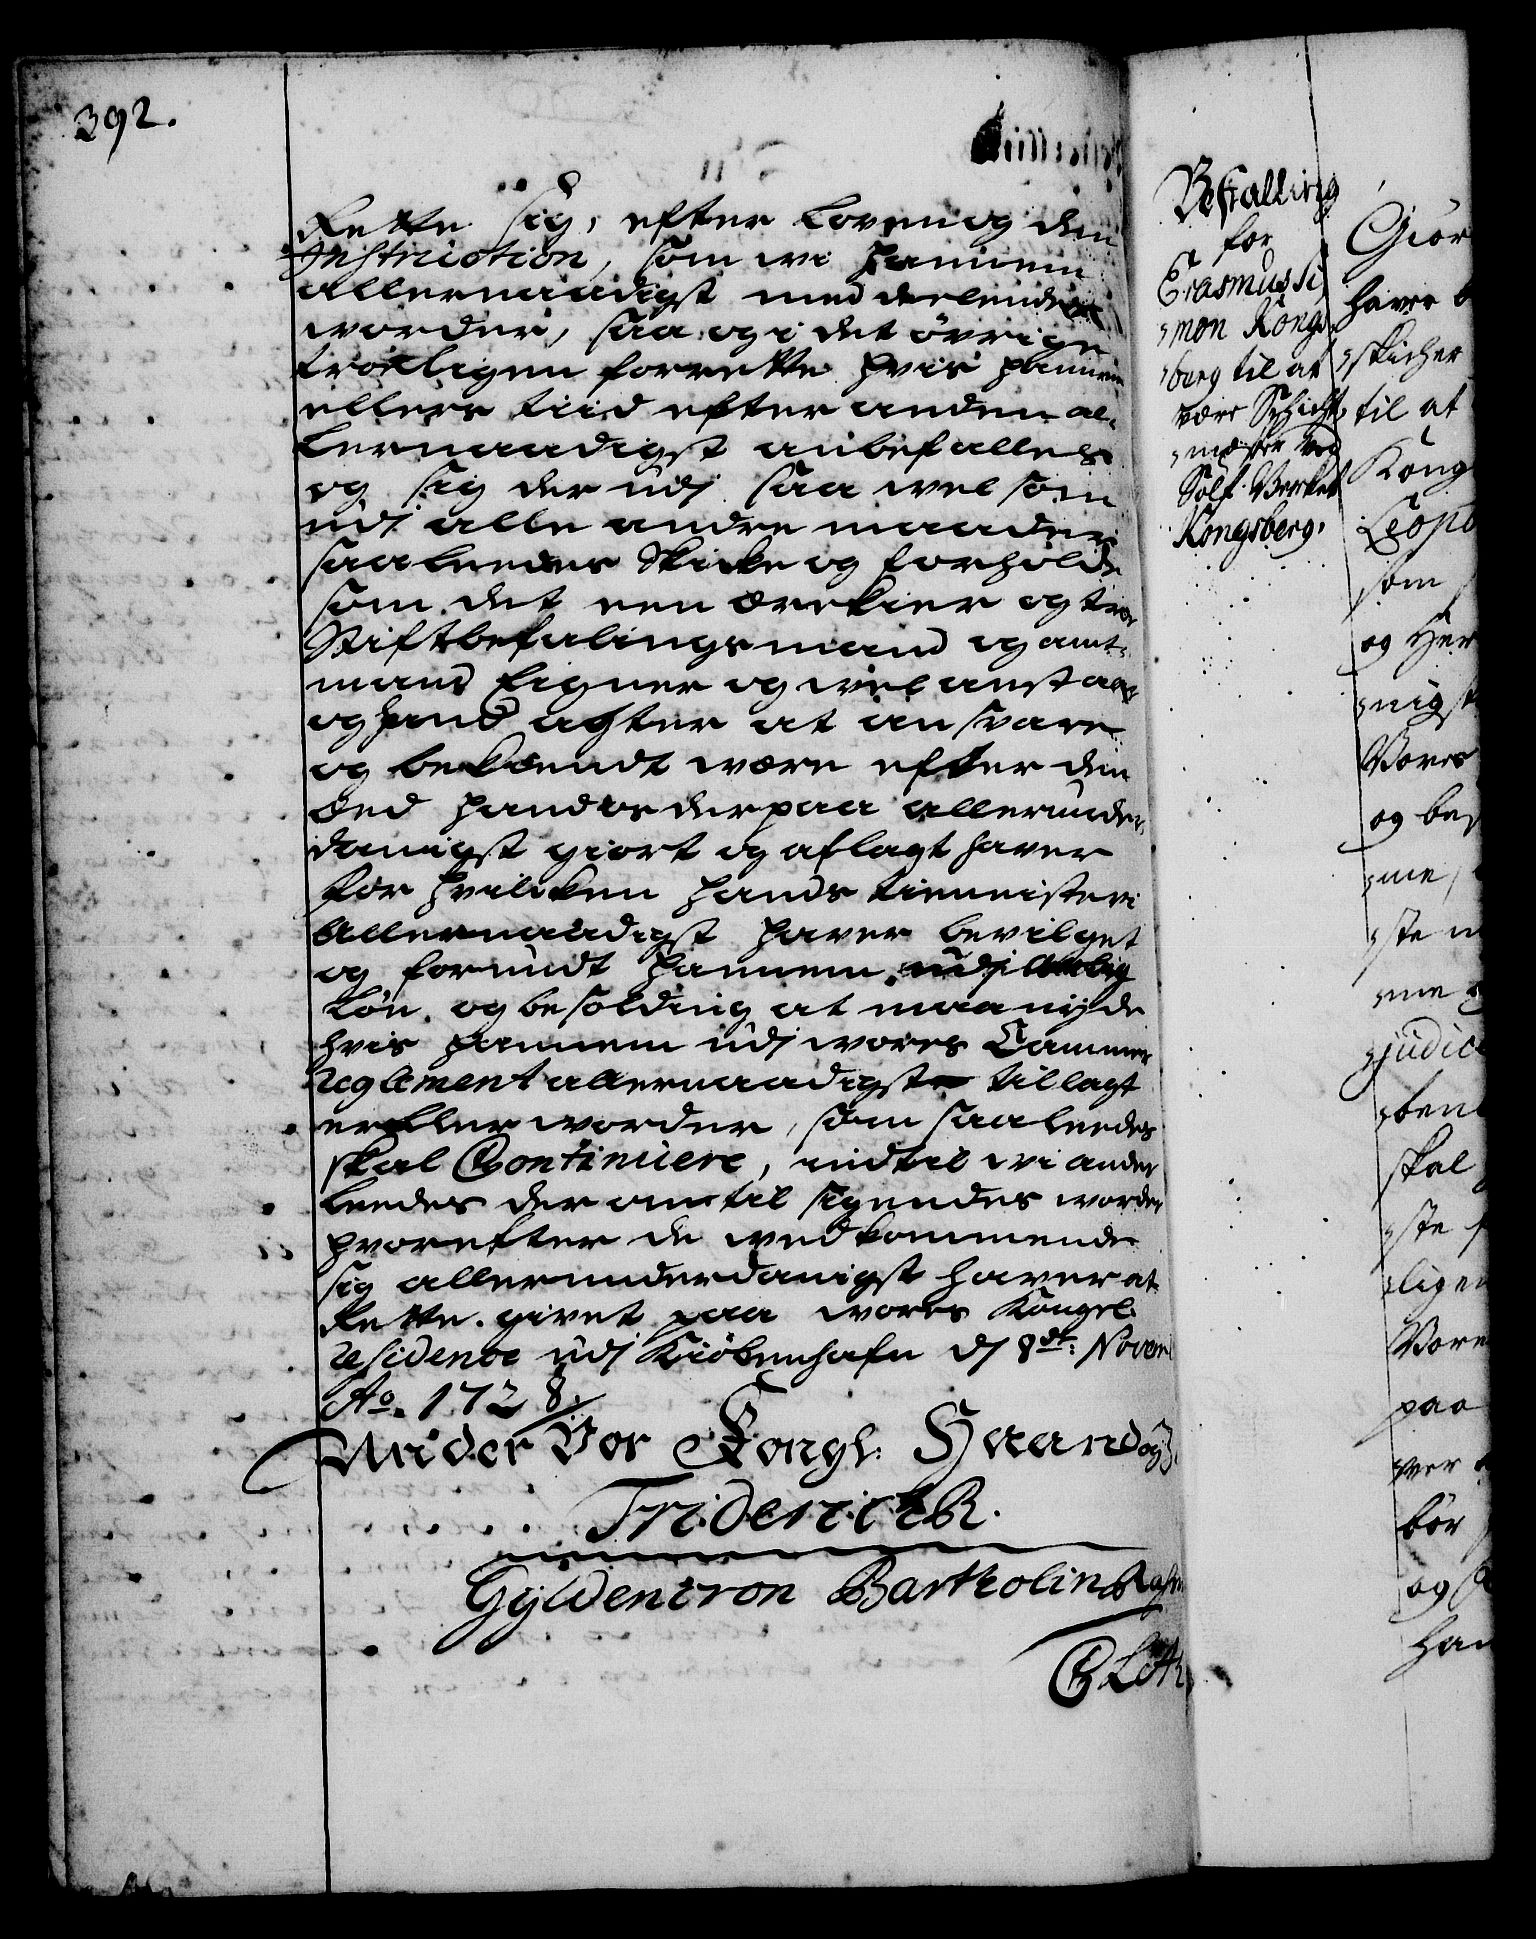 392.
Rette sig, efter Loven og den
Instruction, som wi hannem
allernaadigst med deelendes
worder, saa og i det övrige
troeligen forrette hvis hannem
ellers tiid efter anden al-
lernaadigst anbefalles
og sig der udj saa wel som
udj alle andre maader
saaleedes skicke og forholde
som det een ærekier og troe
Stiftbefalingsmand og amt-
mand Eigner og wel anstaar
og hand agter at ansvare
og bekiendt wære efter den
Eed hand os derpaa allerunder-
danigst giort og aflagt haver
for hvilcken hands tienniste wi
Allernaadigst haver bevilget
og forundt hannem udj Aarlig
Løn og besolding at maa nyde
hvis hannem udj wores Cammer
Reglement allernaadigst tillagt
er eller worder, som saaleedes
skal Continuere, indtil wi ander
leedes der om til sigendes worder
hvorefter de wedkommende
sig allerunderdanigst haver at
Rette. givet paa wores Kongel.
Residence udj Kiöbenhafn dj 8de: Novem
Ao. 1728.
Under Vor Kongl. Haand og
Friderich R.
Gyldencron Bartholin
Bestalling
for
Erasmus Si
mon Kongs
berg til at
være Schicht
mester ved
Sölf Verket
Kongsberg.
Giör
haver
skicher
til at
Kong
Leopo
som
og Her
nigst
Vores
og bes
me,
ste
me
judice
ben
skal
ste
ligen
Vore
paa
ver
bör
og
han